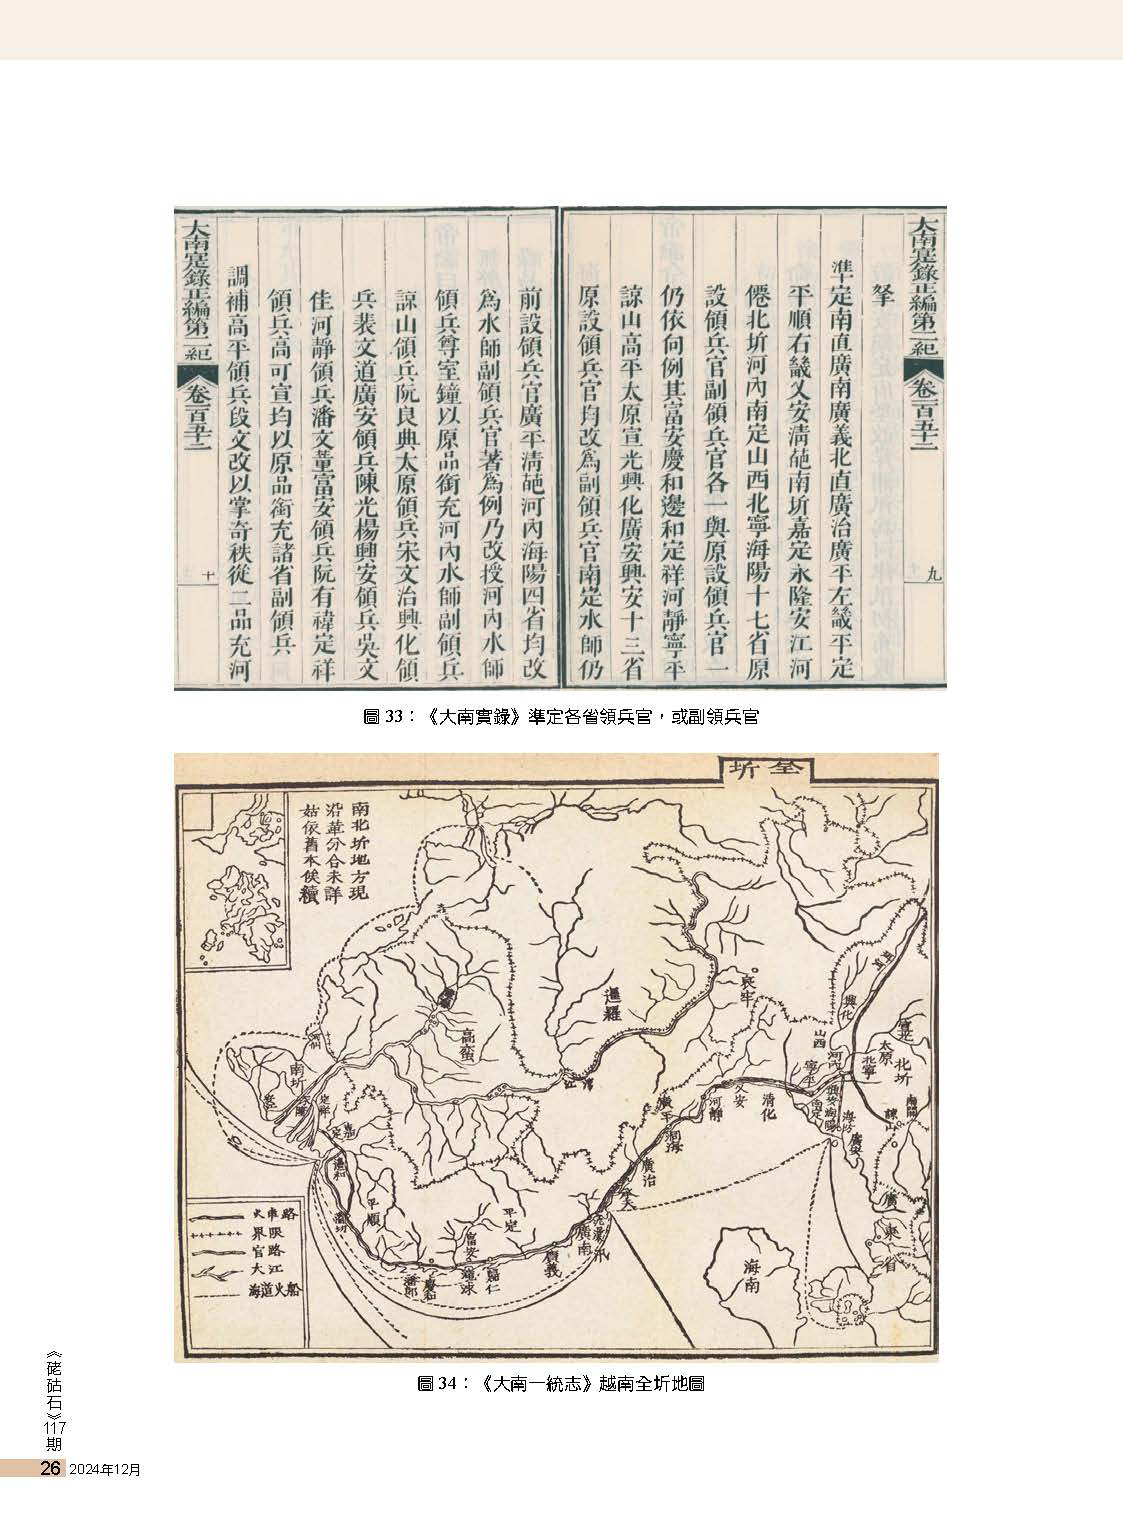 大南寔錄正編第二紀 卷一百五十二
九
拏
準定南直廣南廣義北直廣治廣平左畿平定
平順右畿乂安清葩南圻嘉定永隆安江河
僊北圻河內南定山西北寧海陽十七省原
設領兵官副領兵官各一與原設領兵官一
仍依向例其富安慶和邊和定祥河靜寧平
諒山高平太原宣光興化廣安興安十三省
原設領兵官均改爲副領兵官南定水師仍
前設領兵官廣平清葩河內海陽四省均改
爲水師副領兵官著爲例乃改授河內水師
領兵尊室鐘以原品銜充河內水師副領兵
諒山領兵阮良典太原領兵宋文治興化領
兵裴文道廣安領兵陳光楊興安領兵吳文
佳河靜領兵潘文薰富安領兵阮有禕定祥
領兵高可宣均以原品銜充諸省副領兵
調補高平領兵段文改以掌奇秩從二品充河
大南寔錄正編第二紀 卷一百五十二
十
圖 33：《大南實錄》準定各省領兵官，或副領兵官
全圻
南北圻地方現
沿革分合未詳
姑依舊本俟續
暹羅
哀牢
高蠻
南圻
北圻
興化
山西
河內
太原
北寧
寧平
南定
海防
廣安
諒山
南關
清化
乂安
河靜
廣平
洞海
廣治
廣南
廣義
平定
歸仁
富安
慶和
平順
邊和
嘉定
定祥
廣東省
海南
火車路
界限
官路
大江
海道火船
圖 34：《大南一統志》越南全圻地圖
《硓𥑮石》117期
26 2024年12月